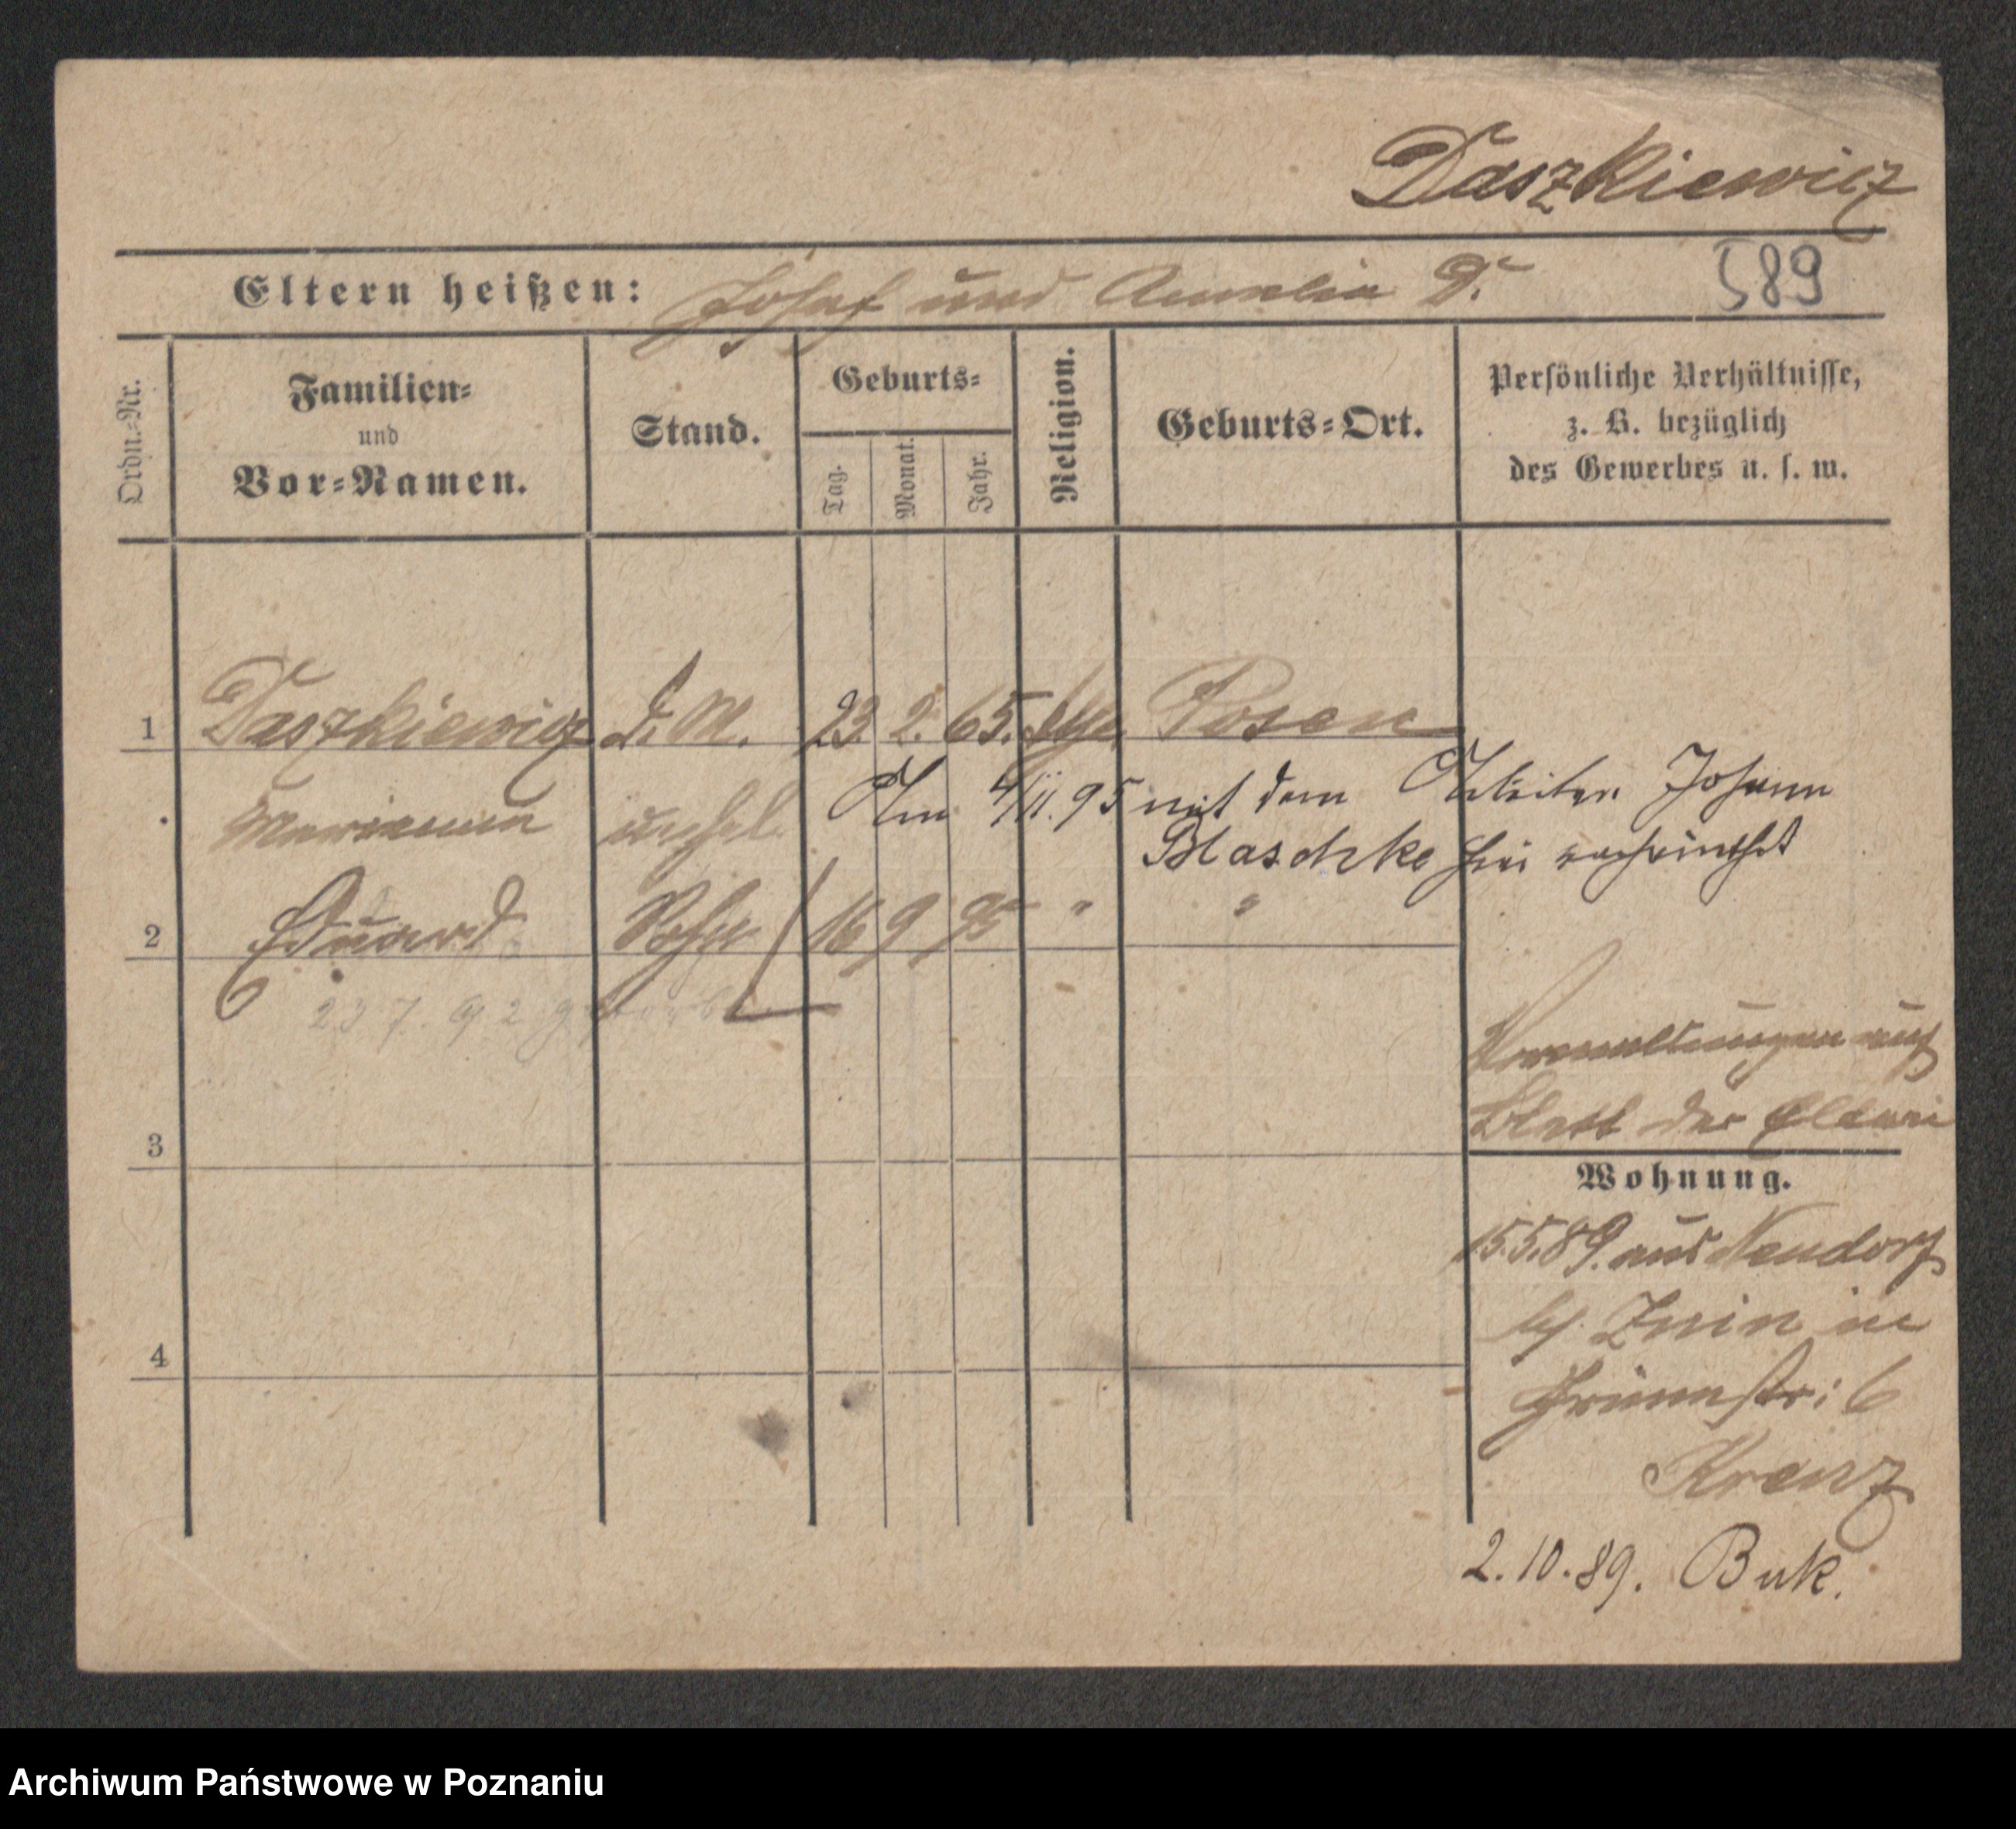 Daszkiewicz
Eltern heißen: Josef und Aurelia D.
589
Ordn.-Nr.
Familien-
und
Vor-Namen.
Stand.
Geburts-
Tag.
Monat.
Jahr.
Religion.
Geburts-Ort.
Persönliche Verhältnisse,
z. B. bezüglich
des Gewerbes u. s. w.
1 Daszkiewicz d. M. 23. 2. 65. Posen
Marianna unehel. Am 4/11. 95 mit dem Arbeiter Johann
Blaschke hier verheirathet
2 Eduard Sohn 16 9 95 " "
23 7. 92 gestorben
auf
Blatt der Eltern
3
Wohnung.
15.5.89. aus Neudorf
b/. Znin in
Grünestr: 6
4
Krenz
2.10.89. Buk.
Archiwum Państwowe w Poznaniu